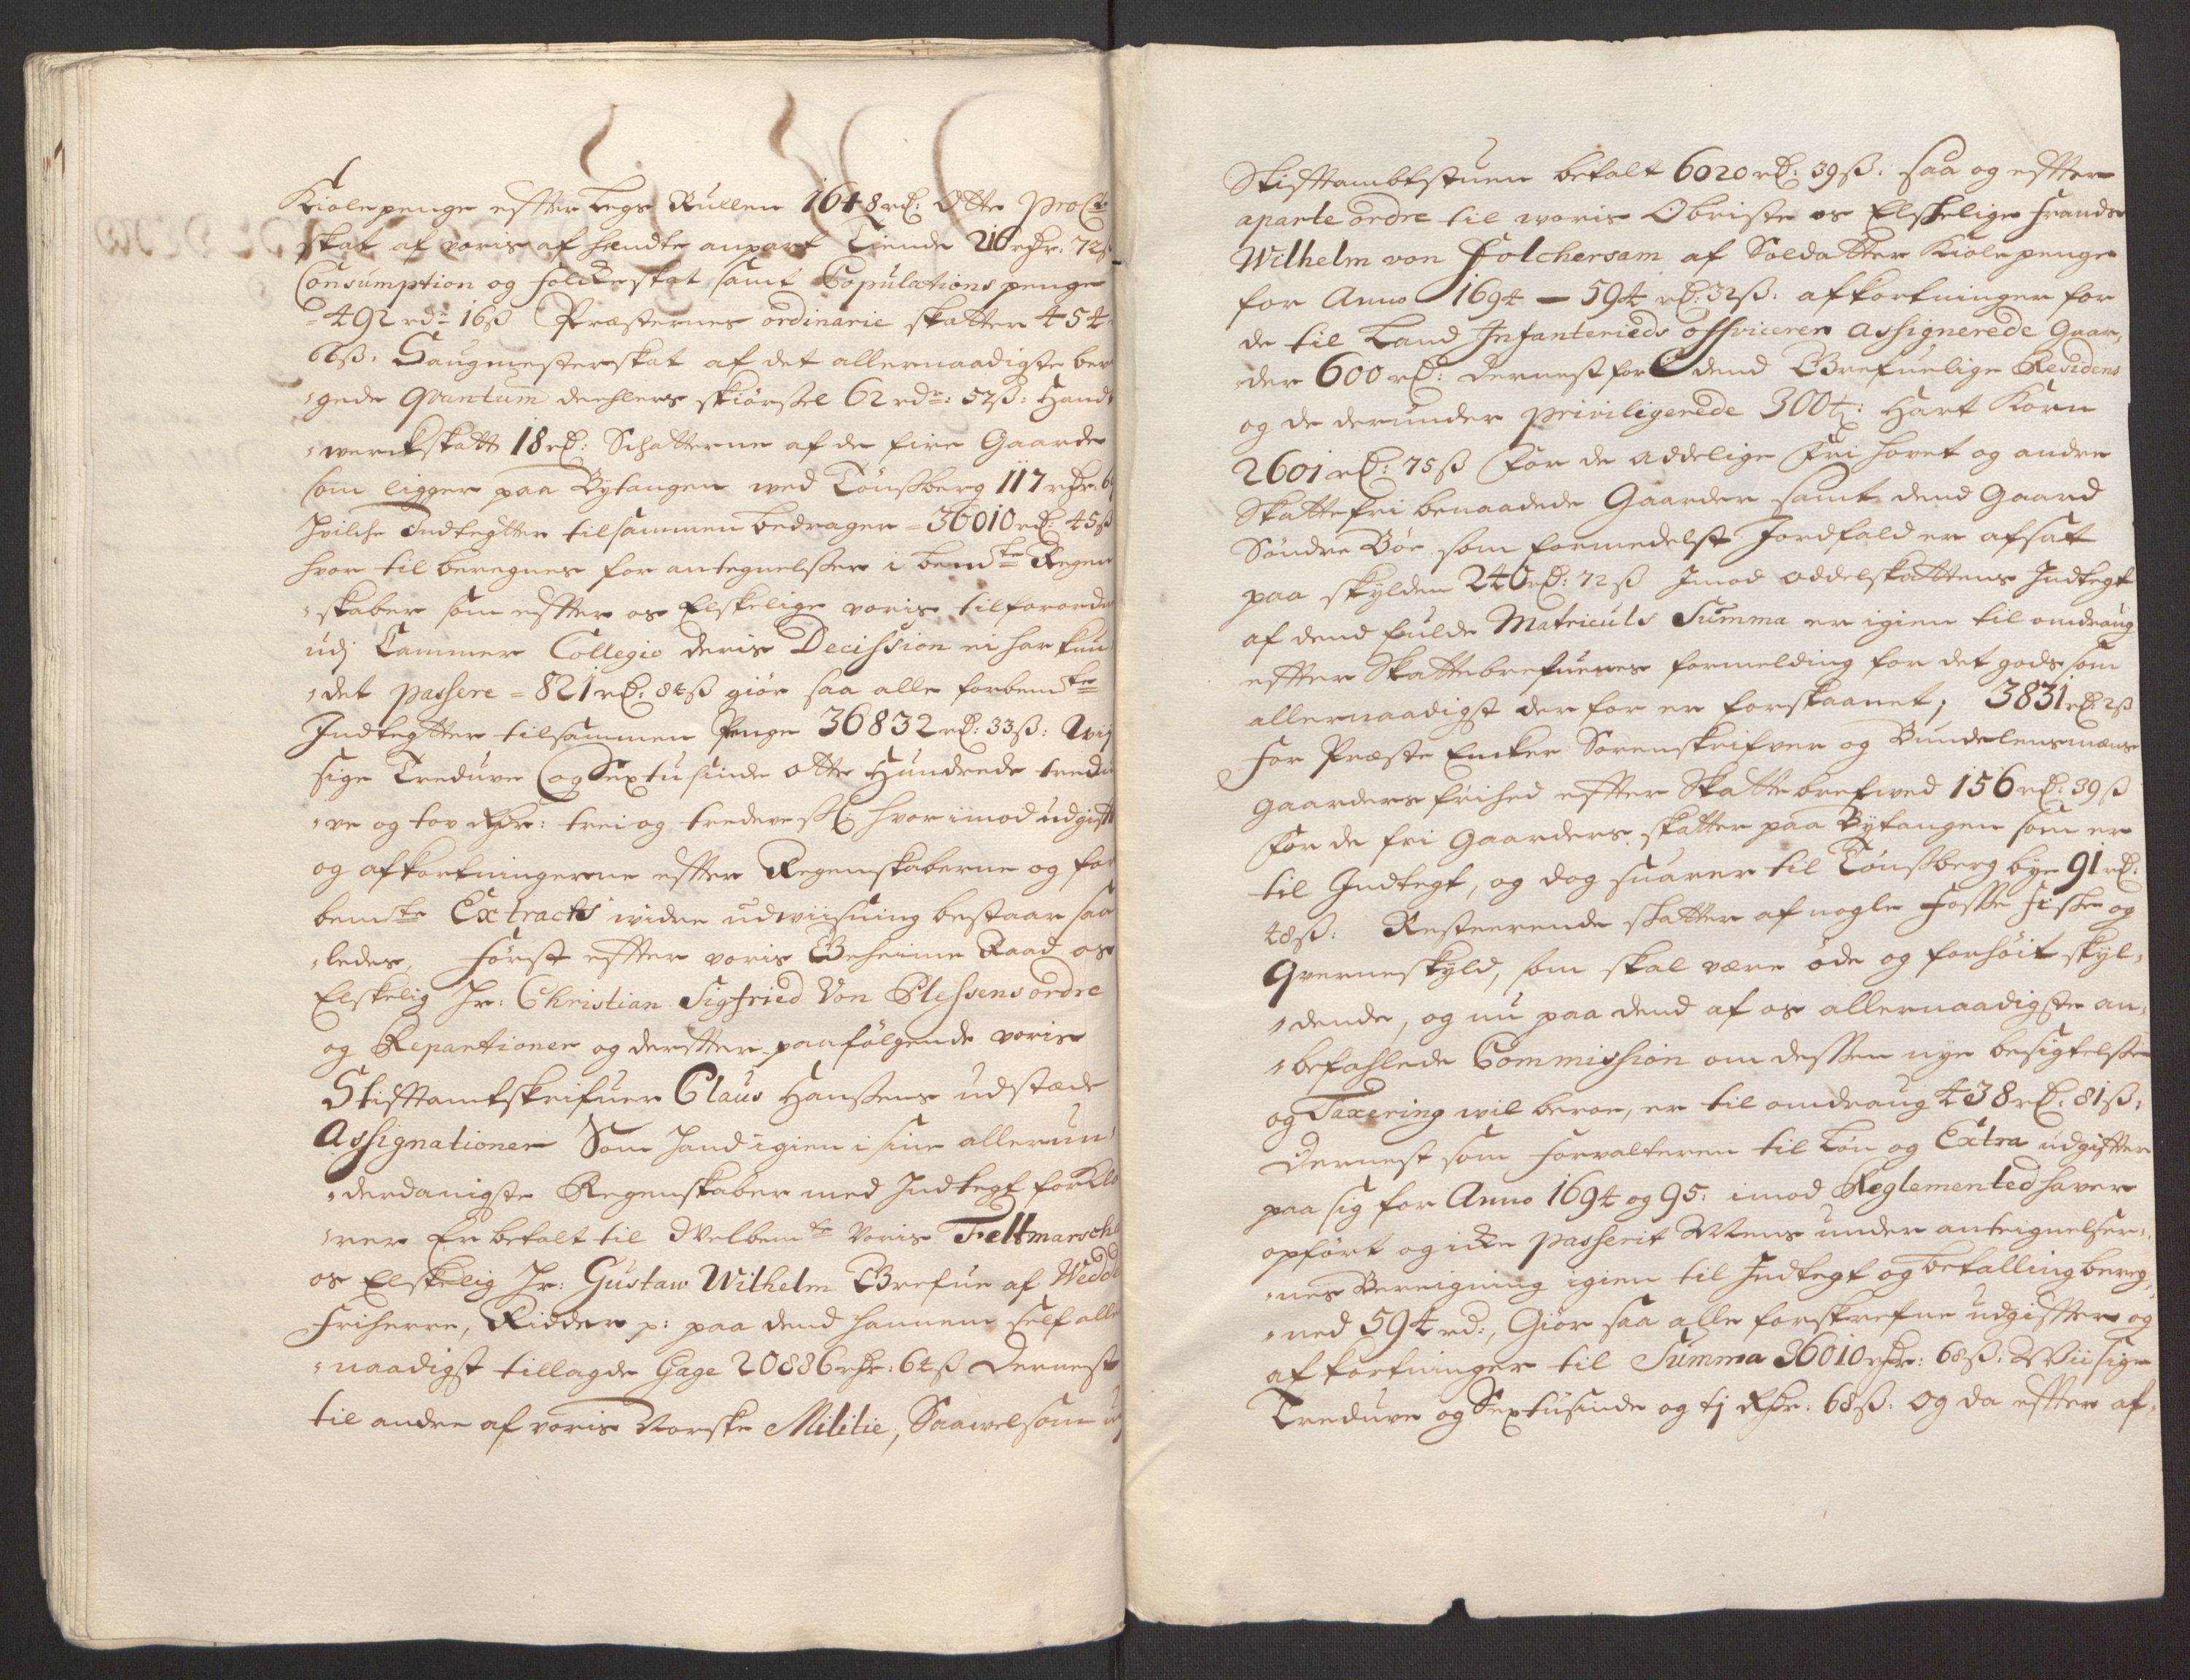 Kiolepenge effter Legs Rullen 1648 rd: Otte ProC:to
skat af voris af hændte anpart Tiende 216 rdr: 72ß
Consumption og folckeskat samt Copulations penge
= 492 rdr 16ß Præsternes ordinarie skatter 454
66ß. Saugmesterskat af det allernaadigste bevil
"gede Qvantum deehlers skiørsel 62 rdr: 52ß: Handt
"werckskatt 18 rd: Schatterne af de fire Gaarde
som ligger paa Bytangen ved Tönsberg 117 rdr: 6
Hvilche Indtegtter tilsammen bedrager = 36010 rd: 45ß
hvor til beregnes for antegnelsser i bemte Regen
"skaber som effter os Elskelige voris tilforordn
udj Cammer Collegio deris Decission ei har kun
"det passere = 821 rd: 84ß giør saa alle forbemte
Indtegtter tilsammen Penge 36832 rd: 33ß: Wij
sige Treduve og Sextusinde otte Hundrede tredu
"ve og tov Rdr: trei og tredeve ß hvor imod udgift
og afkortningerne effter Regenskaberne og for
bemte Extracts widre udwiisning bestaar saa
"ledes, Först effter voris Geheime Raad os
Elskelig Hr: Christian Sigfried Von Plessens ordre
og Repartioner og dereffter paafölgende voris
Stifftamtskrifuer Claus Hanssens udstæde
Assignationer Som hand igien i sine allerun
"derdanigste Regenskaber med Indtegt forkla
"rer Er betalt til Welbemte Voris Feltmarschal
os Elskelig Hr: Gustaw Wilhelm Grefue af Wedel
Friherre, Ridder p: paa dend hannem self aller
"naadigst tillagde Gage 20886 rdr: 64ß Dernest
til andre af voris Norske Militie, Saavelsom udj
Stifftambtstuen betalt 6020 rd: 39ß. saa og effter
aparte ordre til woris Obriste os Elskelige Frands
Wilhelm von Folchersam af Soldatter Kiolepenge
for Anno 1694 – 594 rd: 32ß. afkortninger for
de til Land Infanterieds officerer assignerede Gaar,
der 600 rd: Dernest for dend Grefuelige Residens
og de derunder priviligerede 300 t: Hart Korn
2601 rd: 75ß for de Addelige Fri hovet og andre
Skattefri benaadede Gaarder samt dend Gaard
Söndre Böe som formedelst Jordfald er afsat
paa skylden 240 rd: 72ß Imod oddelskattens Indtegt
af dend fulde Matriculs Summa er igien til omdraug
effter Skattebrefuenes formelding for det gods som
allernaadigst der for er forskaanet, 3831 rd 2ß
For Præste Encker Sorenskrifver og Bundelensmæns
gaarders frihed effter Skattebrefved 156 rd: 39ß
For de fri Gaarders skatter paa Bytangen som er
til Indtegt, og dog suarer til Tönsberg bye 91 rd:
48ß. Resterende skatter af nogle Fosse Fiske og
Qverneskyld, som skal være øde og forhöit skyl,
"dende, og nu paa dend af os allernaadigste an,
"befahlede Commission om dessen nye besigtelsse
og Taxering wil beroe, er til omdraug 438 rd. 81ß,
Dernest som Forvalteren til Lön og Extra udgiffter
paa sig for Anno 1694 og 95: imod Reglemented hafver
opfört og icke passerit Mens under antegnelser,
"nes Bereigning igien til Indtegt og betalling bereg,
"ned 594 rd:, Giör saa alle forskrefne udgiffter og
afkortninger til Summa 36010 rdr: 68ß: Wii sige
Treduve og Sextusinde og tj Rdr: 68ß. og da effter af,